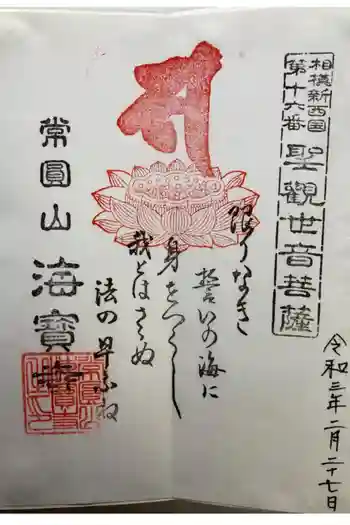 相模新西国
第十六番
聖觀世音菩薩
限りなき
誓いの海に
身をつくし
我とはさぬ
法の早ふね
常圓山
海寶
令和三年二月二十七日